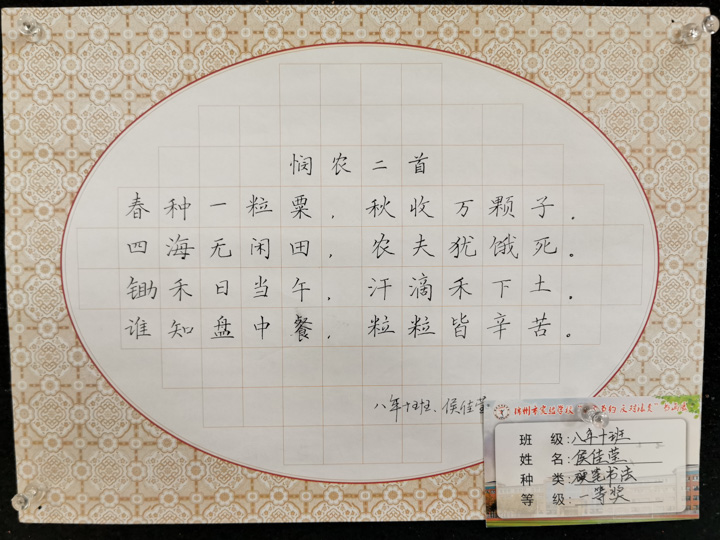 悯农二首
春种一粒粟，秋收万颗子。
四海无闲田，农夫犹饿死。
锄禾日当午，汗滴禾下土，
谁知盘中餐，粒粒皆辛苦。
八年十班、侯佳莹
班 级：八年十班
姓 名：侯佳莹
种 类：硬笔书法
等 级：一等奖